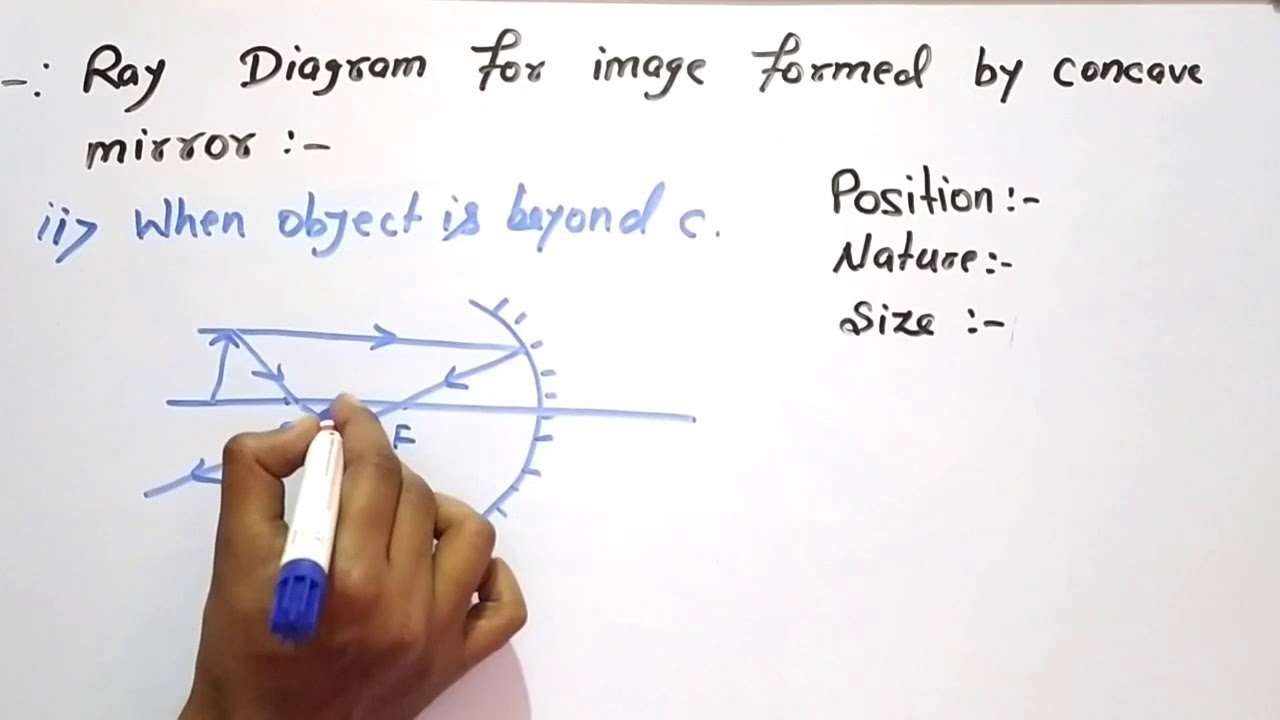 -: Ray Diagram for image formed by concave
mirror :-
ii> When object is beyond c.
Position :-
Nature :-
Size :-
F